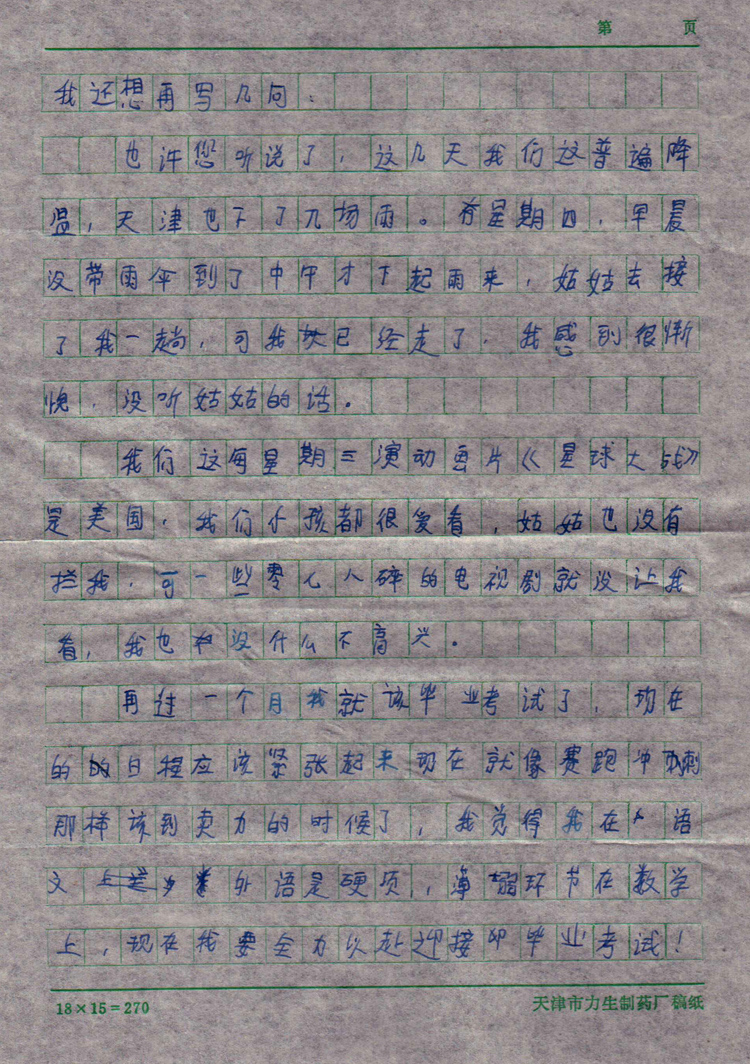 第 页
我还想再写几句：
也许您听说了，这几天我们这普遍降
温，天津也下了几场雨。有星期四，早晨
没带雨伞到了中午才下起雨来，姑姑去接
了我一趟，可我已经走了，我感到很惭
愧，没听姑姑的话。
我们这每星期三演动画片《星球大战》
是美国，我们小孩都很爱看，姑姑也没有
拦我，可一些零七八碎的电视剧就没让我
看，我也没什么不高兴。
再过一个月我就该毕业考试了，现在
的日程应该紧张起来现在就像赛跑冲刺
那样该到卖力的时候了，我觉得我在语
文上 外语是硬项，薄弱环节在数学
上，现在我要全力以赴迎接毕业考试！
18×15=270 天津市力生制药厂稿纸